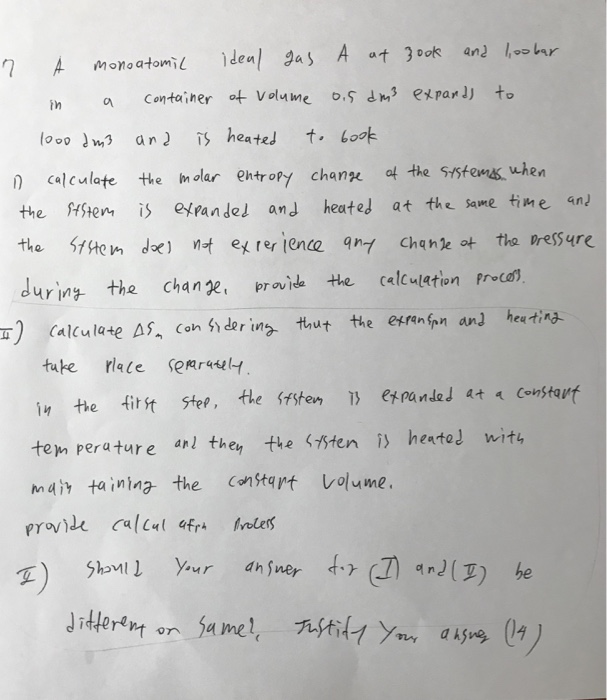 7 A monoatomic ideal gas A at 300k and 1,00bar
in a container of volume 0.5 dm³ expands to
1000 dm3 and is heated to 600k
I) calculate the molar entropy change of the system when
the system is expanded and heated at the same time and
the system does not experience any change of the pressure
during the change, provide the calculation process.
II) calculate ΔSm considering that the expansion and heating
take place separately.
in the first step, the system is expanded at a constant
temperature and then the system is heated with
maintaining the constant volume.
provide calculation process
II) should your answer for (I) and (II) be
different or same?, Justify your answer (14)